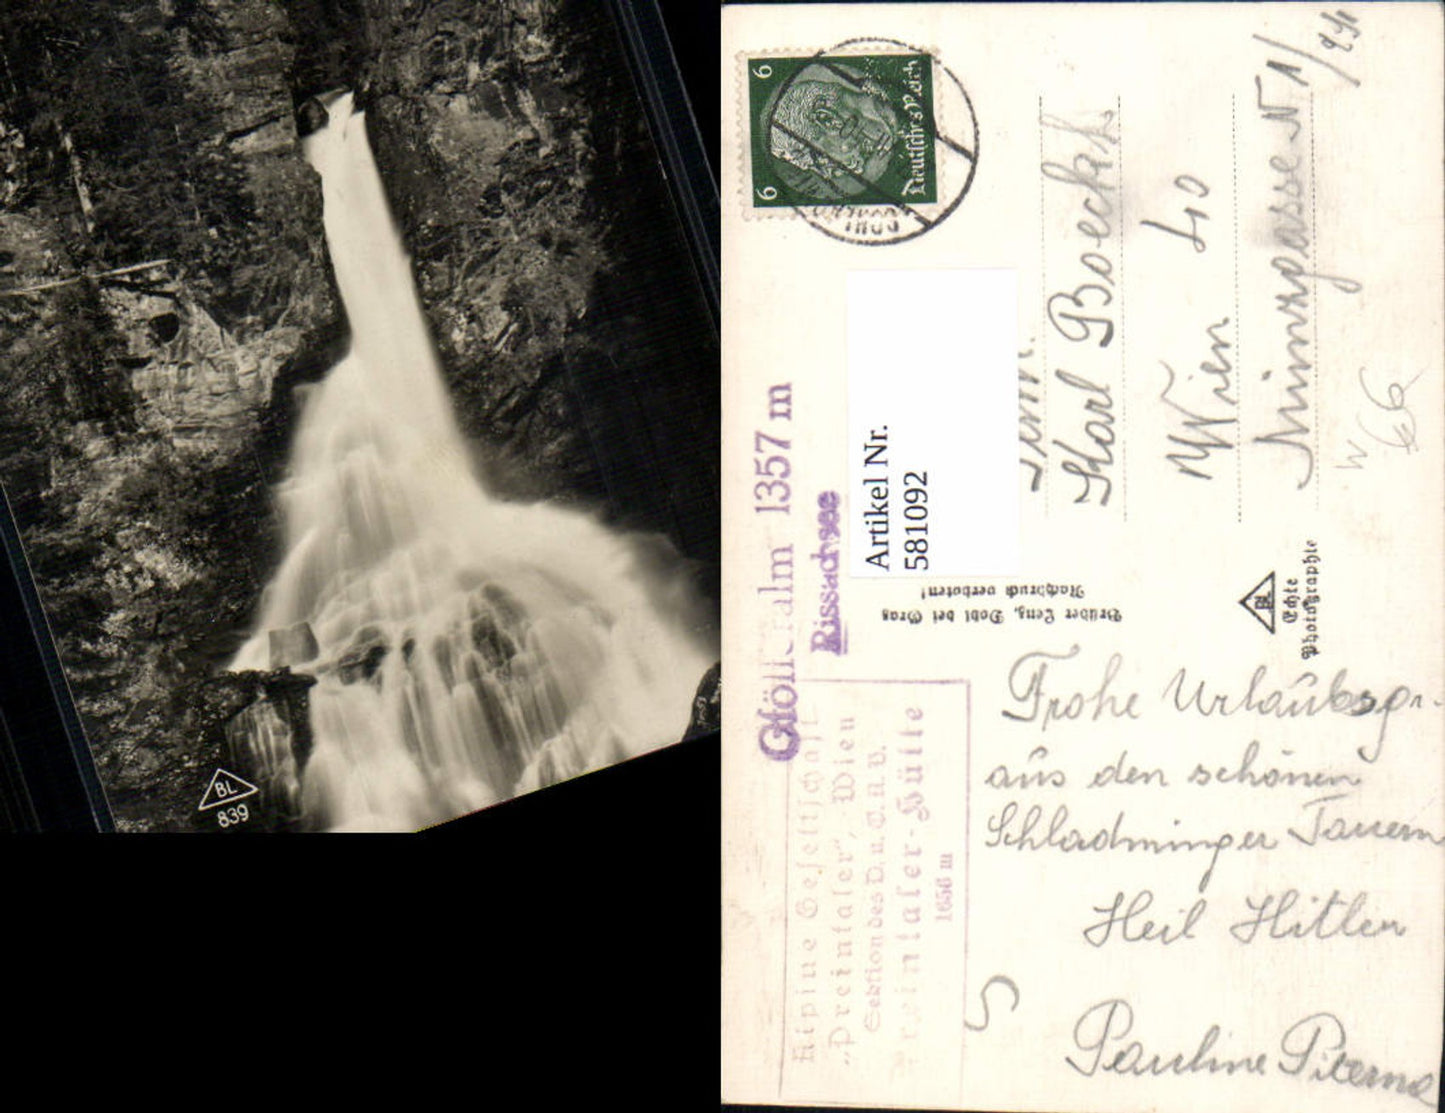 BL
839
6
6
Deutsches Reich
Karl Boeckl
Wien 40
Gfölleralm 1357 m
Rissachsee
Artikel Nr.
581092
Brüder Lenz, Dobl bei Graz
Nachdruck verboten!
BL
Echte
Photographie
Alpine Gesellschaft
„Preintaler", Wien
Sektion des D. u. Ö. A. V.
Preintaler-Hütte
1656 m
Frohe Urlaubsgr.
aus den schönen
Schladminger Tauern
Heil Hitler
Pauline
W
66